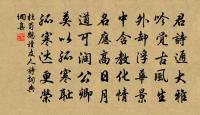 君詩通大雅
吟覺古風生
外却浮華景
中含教化情
名應高日月
道可潤公卿
莫以孤寒恥
孤寒達更榮
杜荀鶴讀友人詩詞典
網